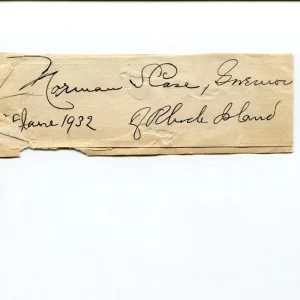 Norman S Case, Governor
June 1932 of Rhode Island